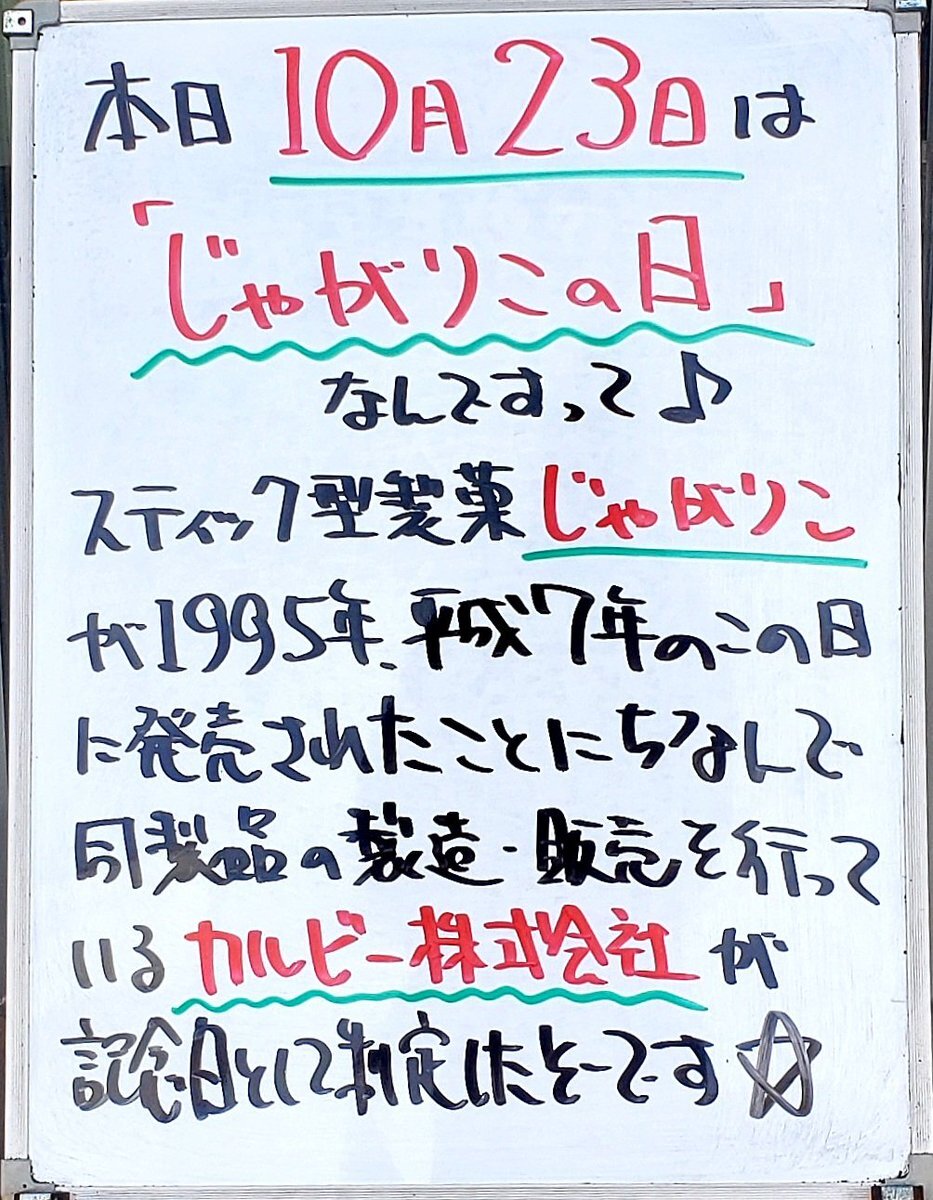 本日10月23日は
「じゃがりこの日」
なんですって♪
スティック型製菓じゃがりこ
が1995年、平成7年のこの日
に発売されたことにちなんで
同製品の製造・販売を行って
いるカルビー株式会社が
記念日として制定したそーです☆